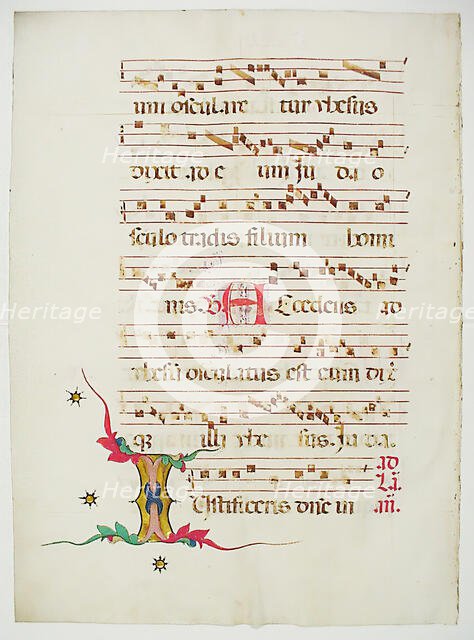 um oscularetur yhesus
dixit ad eum Juda o
sculo tradis filium homi
nis. V. Accedens ad
yhesum osculatus est eum dix
q3 illi yhesus. Juda.
ad
La.
III.
Iustificeris dñe in
Heritage Heritage
Heritage Heritage
Heritage Heritage